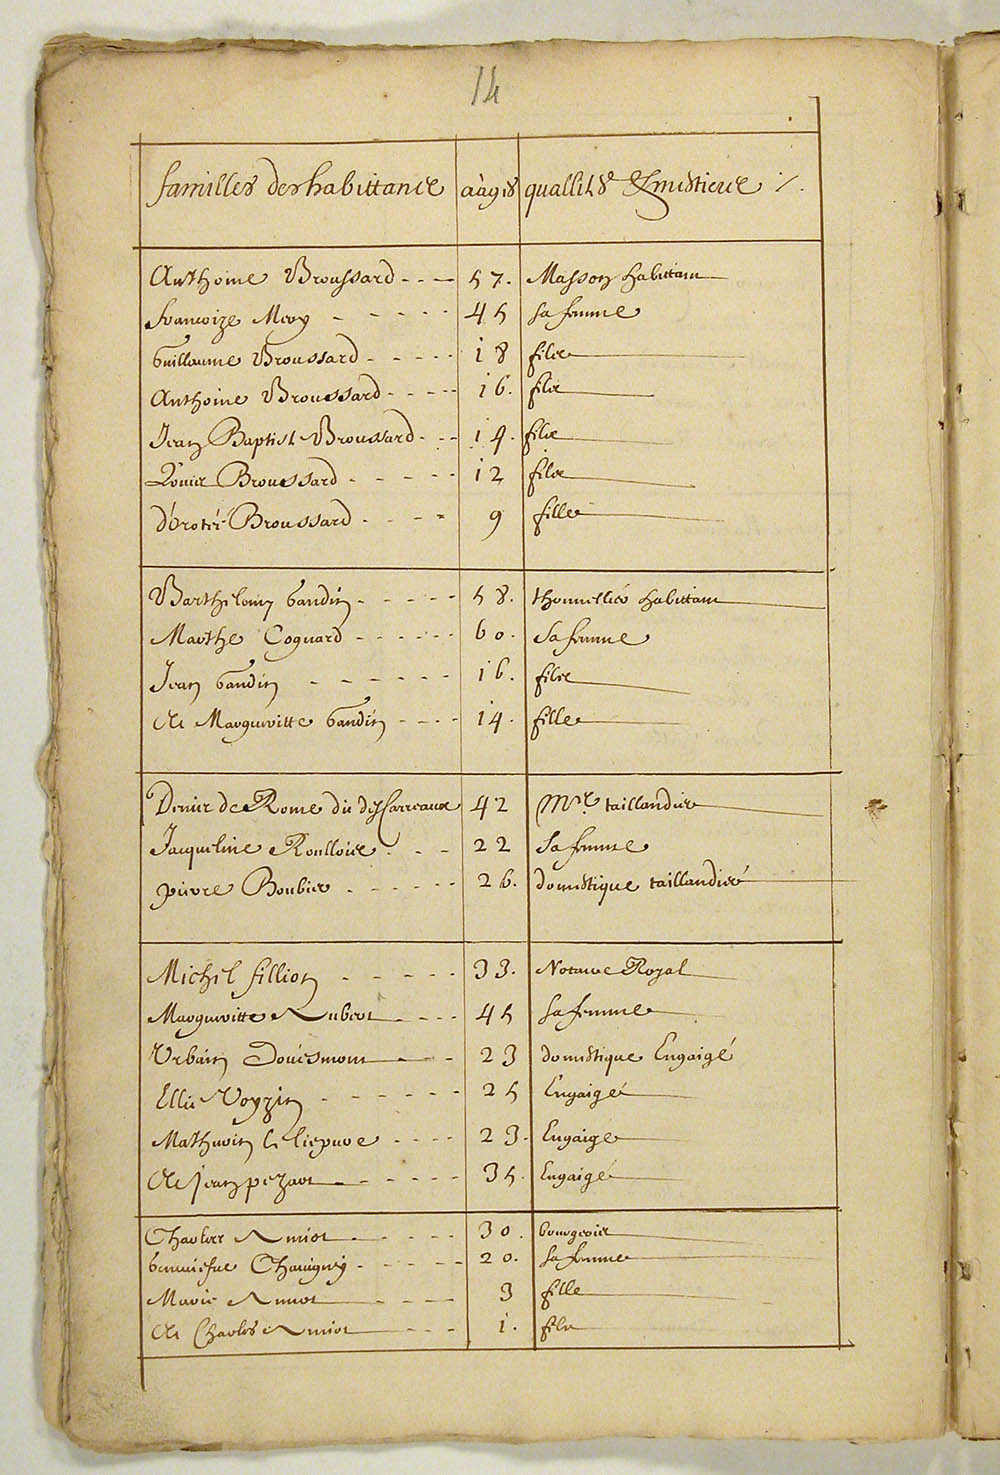 14
familles des habittans aâges quallités & mestiers /.
Anthoine Broussard - - - 57. Masson habittant
Francoize Mery - - - - - 45 sa femme
Guillaume Broussard - - - - 18 filz
Anthoine Broussard - - - - 16. filz
Jean Baptist Broussard - - - 14. filz
Louis Broussard - - - - - 12 filz
d'Orotéé Broussard - - - - 9 fille
Barthelemy Gaudin - - - - - 58. thonnellier habittant
Marthe Cognard - - - - - - 60. Sa femme
Jean Gaudin - - - - - - 16. filz
Et Margueritte Gaudin - - - - 14. fille
Denis de Rome dit des Carreaux 42 Mre. taillandier
Jacqueline Roulloiee - - - 22 Sa femme
pierre Boubier - - - - - - 26. domestique taillandier
Michel fillion - - - - - 33. Notaire Royal
Margueritte Aubert - - - - 45 Sa femme
Urbain Douesmont - - - 23 domestique Engaigé
Ellie Voyzin - - - - - - 25 Engaigé
Mathurin le liepure - - - - 23. Engaige
Et Jean pezart - - - - - - 35. Engaigé
Charles Amiot - - - - - 30. bourgeois
Genuiefue Chauigny - - - - - 20. sa femme
Marie Amiot - - - - 3 fille
Et Charles Amiot - - - 1. filz